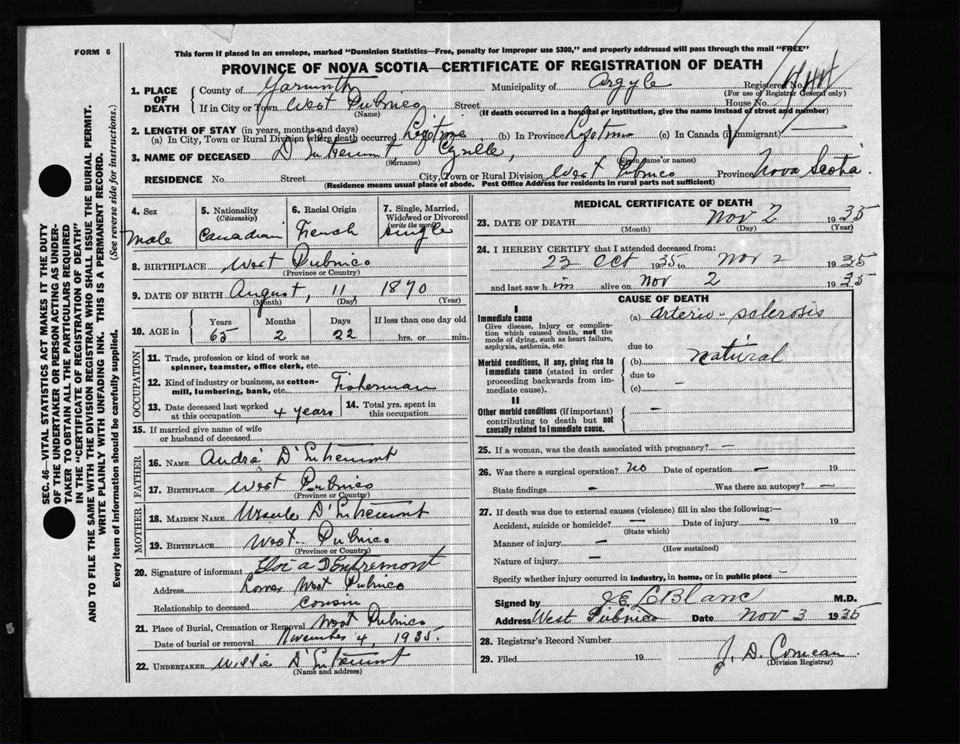 FORM 6
This form if placed in an envelope, marked "Dominion Statistics—Free, penalty for improper use $300," and properly addressed will pass through the mail "FREE"
PROVINCE OF NOVA SCOTIA—CERTIFICATE OF REGISTRATION OF DEATH
SEC. 46—VITAL STATISTICS ACT MAKES IT THE DUTY
OF THE UNDERTAKER OR PERSON ACTING AS UNDER-
TAKER TO OBTAIN ALL THE PARTICULARS REQUIRED
IN THE "CERTIFICATE OF REGISTRATION OF DEATH"
AND TO FILE THE SAME WITH THE DIVISION REGISTRAR WHO SHALL ISSUE THE BURIAL PERMIT.
WRITE PLAINLY WITH UNFADING INK. THIS IS A PERMANENT RECORD.
Every item of information should be carefully supplied. (See reverse side for instructions.)
1. PLACE OF DEATH
County of Yarmouth Municipality of Argyle Registered No.
(For use of Registrar General only)
If in City or Town West Pubnico Street House No.
(Name) (If death occurred in a hospital or institution, give the name instead of street and number)
2. LENGTH OF STAY (in years, months and days)
(a) In City, Town or Rural Division where death occurred Lifetime (b) In Province Lifetime (c) In Canada (if immigrant) —
3. NAME OF DECEASED D'Entremont, Cyrille,
(Surname) (Given name or names)
RESIDENCE No. Street City, Town or Rural Division West Pubnico Province Nova Scotia
(Residence means usual place of abode. Post Office Address for residents in rural parts not sufficient)
4. Sex Male
5. Nationality (Citizenship) Canadian
6. Racial Origin French
7. Single, Married, Widowed or Divorced (write the word) Single
8. BIRTHPLACE West Pubnico
(Province or Country)
9. DATE OF BIRTH August, 11 1870
(Month) (Day) (Year)
10. AGE in Years 65 Months 2 Days 22 If less than one day old hrs. or min.
OCCUPATION
11. Trade, profession or kind of work as spinner, teamster, office clerk, etc.
12. Kind of industry or business, as cotton-mill, lumbering, bank, etc. Fisherman
13. Date deceased last worked at this occupation 4 years
14. Total yrs. spent in this occupation
15. If married give name of wife or husband of deceased
FATHER
16. NAME André D'Entremont
17. BIRTHPLACE West Pubnico
(Province or Country)
MOTHER
18. MAIDEN NAME Ursule D'Entremont
19. BIRTHPLACE West Pubnico
(Province or Country)
20. Signature of informant D'Entremont
Address Lower West Pubnico
Relationship to deceased Cousin
21. Place of Burial, Cremation or Removal West Pubnico
Date of burial or removal November 4, 1935.
22. UNDERTAKER Willie D'Entremont
(Name and address)
MEDICAL CERTIFICATE OF DEATH
23. DATE OF DEATH Nov 2 1935
(Month) (Day) (Year)
24. I HEREBY CERTIFY that I attended deceased from:
23 Oct 1935 to Nov 2 1935
and last saw him alive on Nov 2 1935
CAUSE OF DEATH
I
Immediate cause
Give disease, injury or complication which caused death, not the mode of dying, such as heart failure, asphyxia, asthenia, etc.
(a) arterio-sclerosis
due to
Morbid conditions, if any, giving rise to immediate cause (stated in order proceeding backwards from immediate cause).
(b) natural
due to
(c) —
II
Other morbid conditions (if important) contributing to death but not causally related to immediate cause. —
25. If a woman, was the death associated with pregnancy? —
26. Was there a surgical operation? no Date of operation — 19
State findings — Was there an autopsy? —
27. If death was due to external causes (violence) fill in also the following:—
Accident, suicide or homicide? — Date of injury — 19
(State which)
Manner of injury —
(How sustained)
Nature of injury —
Specify whether injury occurred in industry, in home, or in public place —
Signed by J E LeBlanc M.D.
Address West Pubnico Date Nov 3 1935
28. Registrar's Record Number
29. Filed 19 J. D. Comeau
(Division Registrar)